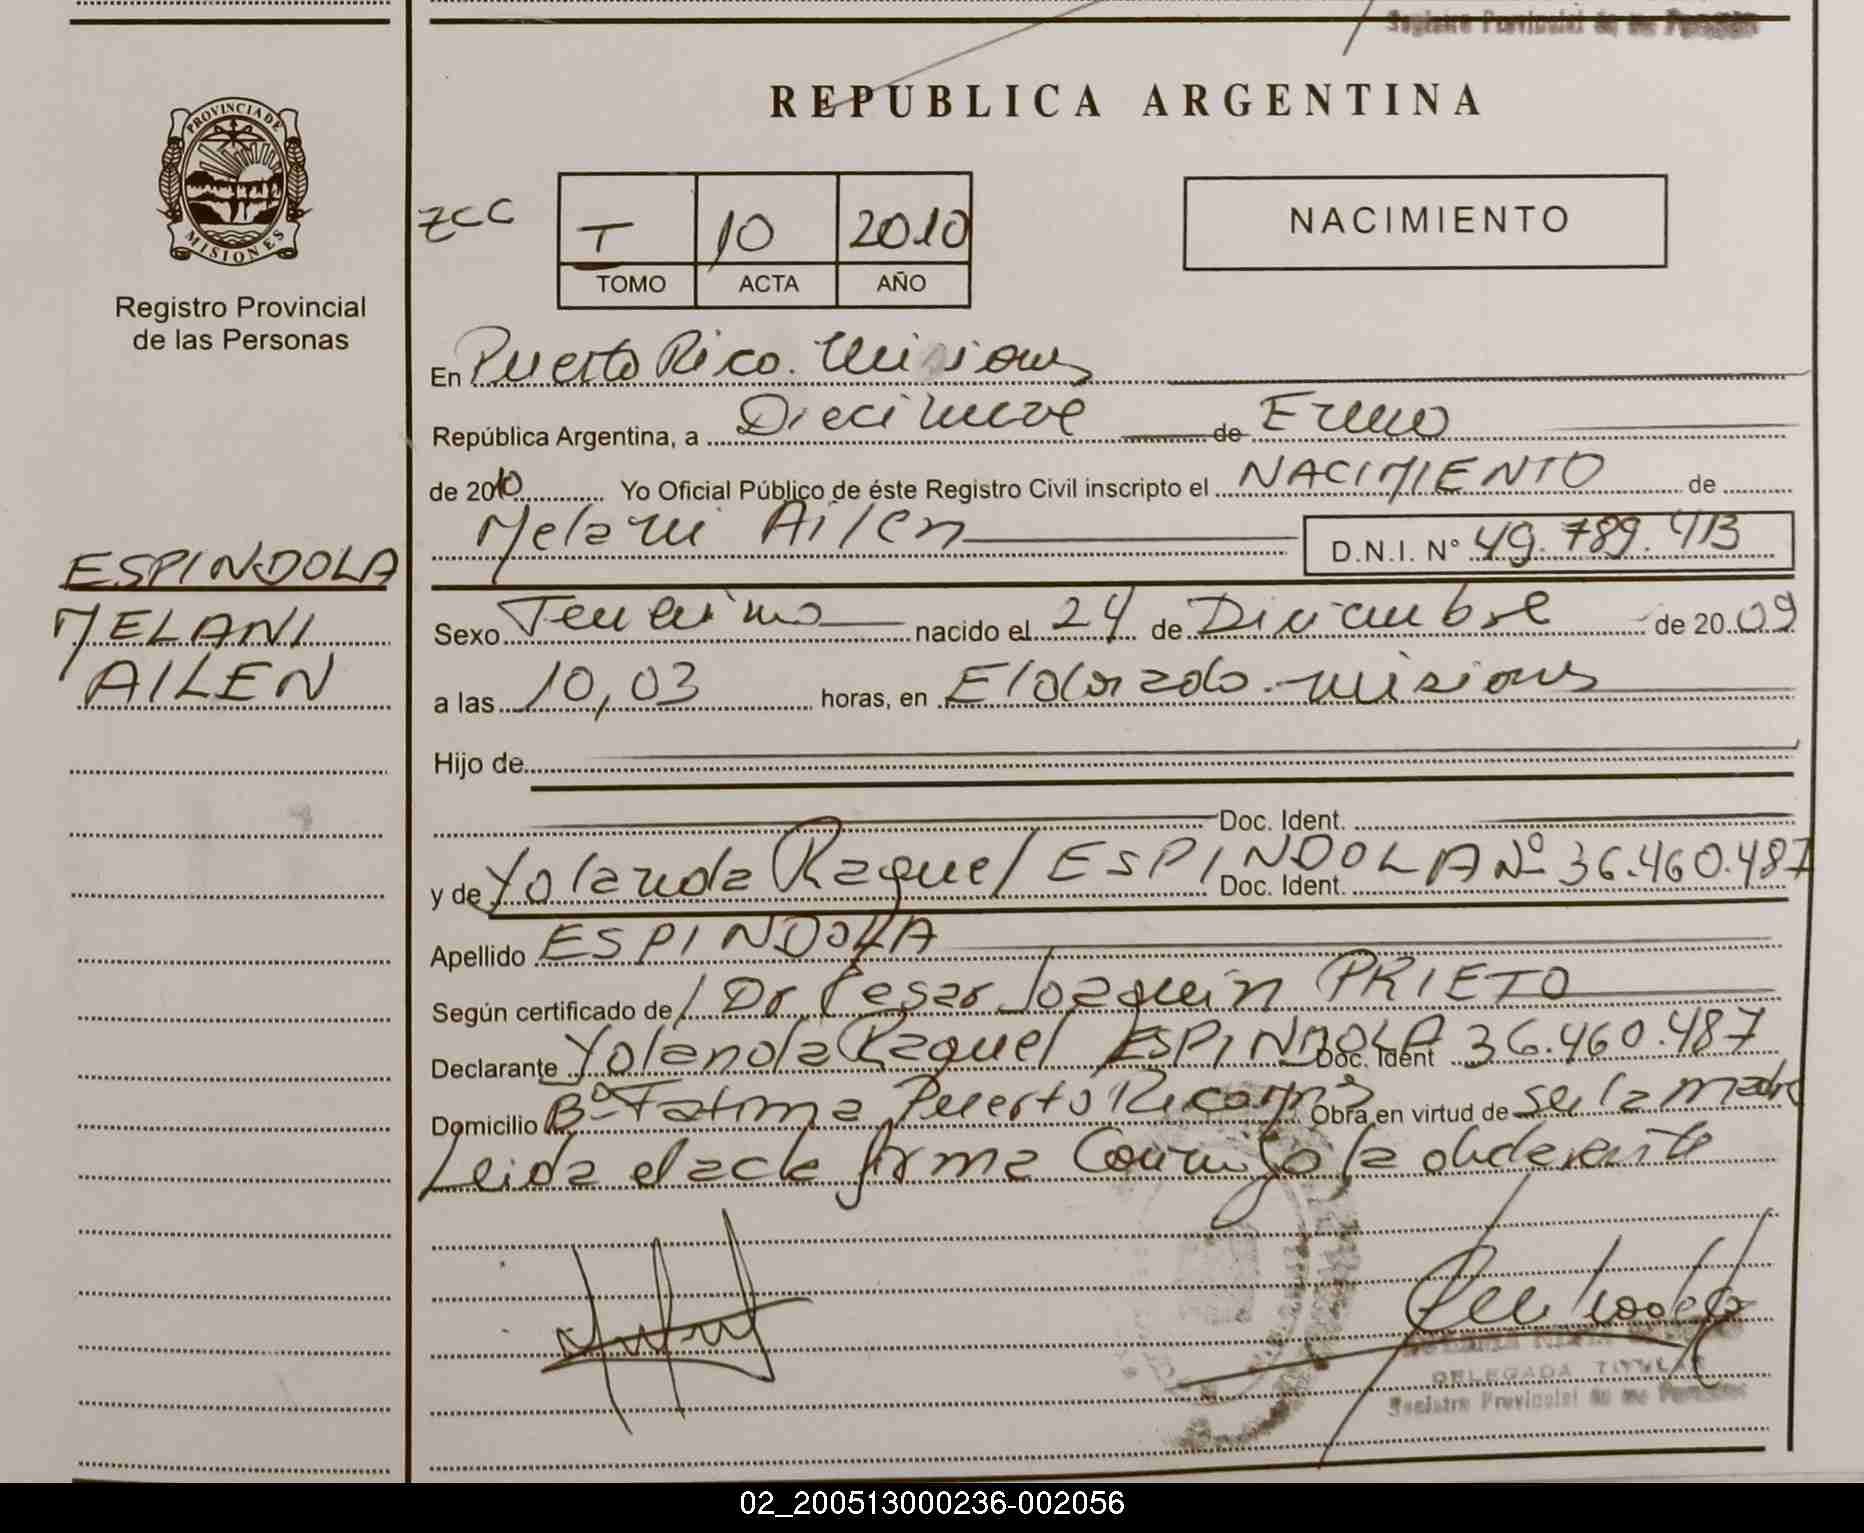 Registro Provincial de las Personas
REPUBLICA ARGENTINA
PROVINCIA DE
MISIONES
Registro Provincial
de las Personas
ZCC
T 10 2010
TOMO ACTA AÑO
NACIMIENTO
En Puerto Rico. Misiones
República Argentina, a Diecinueve de Enero
de 2010 Yo Oficial Público de éste Registro Civil inscripto el NACIMIENTO de
Melani Ailen D.N.I. Nº 49.789.413
ESPINDOLA
MELANI
AILEN
Sexo Femenino nacido el 24 de Diciembre de 2009
a las 10,03 horas, en Eldorado. Misiones
Hijo de
Doc. Ident.
y de Yolanda Raquel ESPINDOLA Doc. Ident. Nº 36.460.487
Apellido ESPINDOLA
Según certificado de Dr Cesar Joaquin PRIETO
Declarante Yolanda Raquel ESPINDOLA Doc. Ident 36.460.487
Domicilio Bº Fatima Puerto Rico Mnes Obra en virtud de ser la madre
Leida el acta firma Conmigo la declarante
DELEGADA TITULAR
Registro Provincial de las Personas
02_200513000236-002056